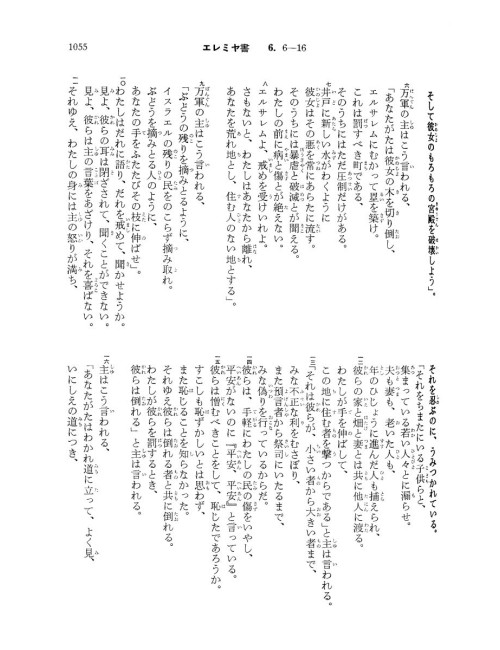 1055
エレミヤ書 6. 6—16
そして彼女のもろもろの宮殿を破壊しよう」。
六万軍の主はこう言われる、
「あなたがたは彼女の木を切り倒し、
エルサレムにむかって塁を築け。
これは罰すべき町である、
そのうちにはただ圧制だけがある。
七井戸に新しい水がわくように
彼女はその悪を常にあらたに流す。
そのうちには暴虐と破滅とが聞える。
わたしの前に病と傷とが絶えない。
八エルサレムよ、戒めを受けいれよ。
さもないと、わたしはあなたから離れ、
あなたを荒れ地とし、住む人のない地とする」。
九万軍の主はこう言われる、
「ぶどうの残りを摘みとるように、
イスラエルの残りの民をのこらず摘み取れ。
ぶどうを摘みとる人のように、
あなたの手をふたたびその枝に伸ばせ」。
一〇わたしはだれに語り、だれを戒めて、聞かせようか。
見よ、彼らの耳は閉ざされて、聞くことができない。
見よ、彼らは主の言葉をあざけり、それを喜ばない。
一一それゆえ、わたしの身には主の怒りが満ち、
それを忍ぶのに、うみつかれている。
「それをちまたにいる子供らと、
集まっている若い人々とに漏らせ。
夫も妻も、老いた人も、
年のひじょうに進んだ人も捕えられ、
一二彼らの家と畑と妻とは共に他人に渡る。
わたしが手を伸ばして、
この地に住む者を撃つからである」と主は言われる。
一三「それは彼らが、小さい者から大きい者まで、
みな不正な利をむさぼり、
また預言者から祭司にいたるまで、
みな偽りを行っているからだ。
一四彼らは、手軽にわたしの民の傷をいやし、
平安がないのに『平安、平安』と言っている。
一五彼らは憎むべきことをして、恥じたであろうか。
すこしも恥ずかしいとは思わず、
また恥じることを知らなかった。
それゆえ彼らは倒れる者と共に倒れる。
わたしが彼らを罰するとき、
彼らは倒れる」と主は言われる。
一六主はこう言われる、
「あなたがたはわかれ道に立って、よく見、
いにしえの道につき、